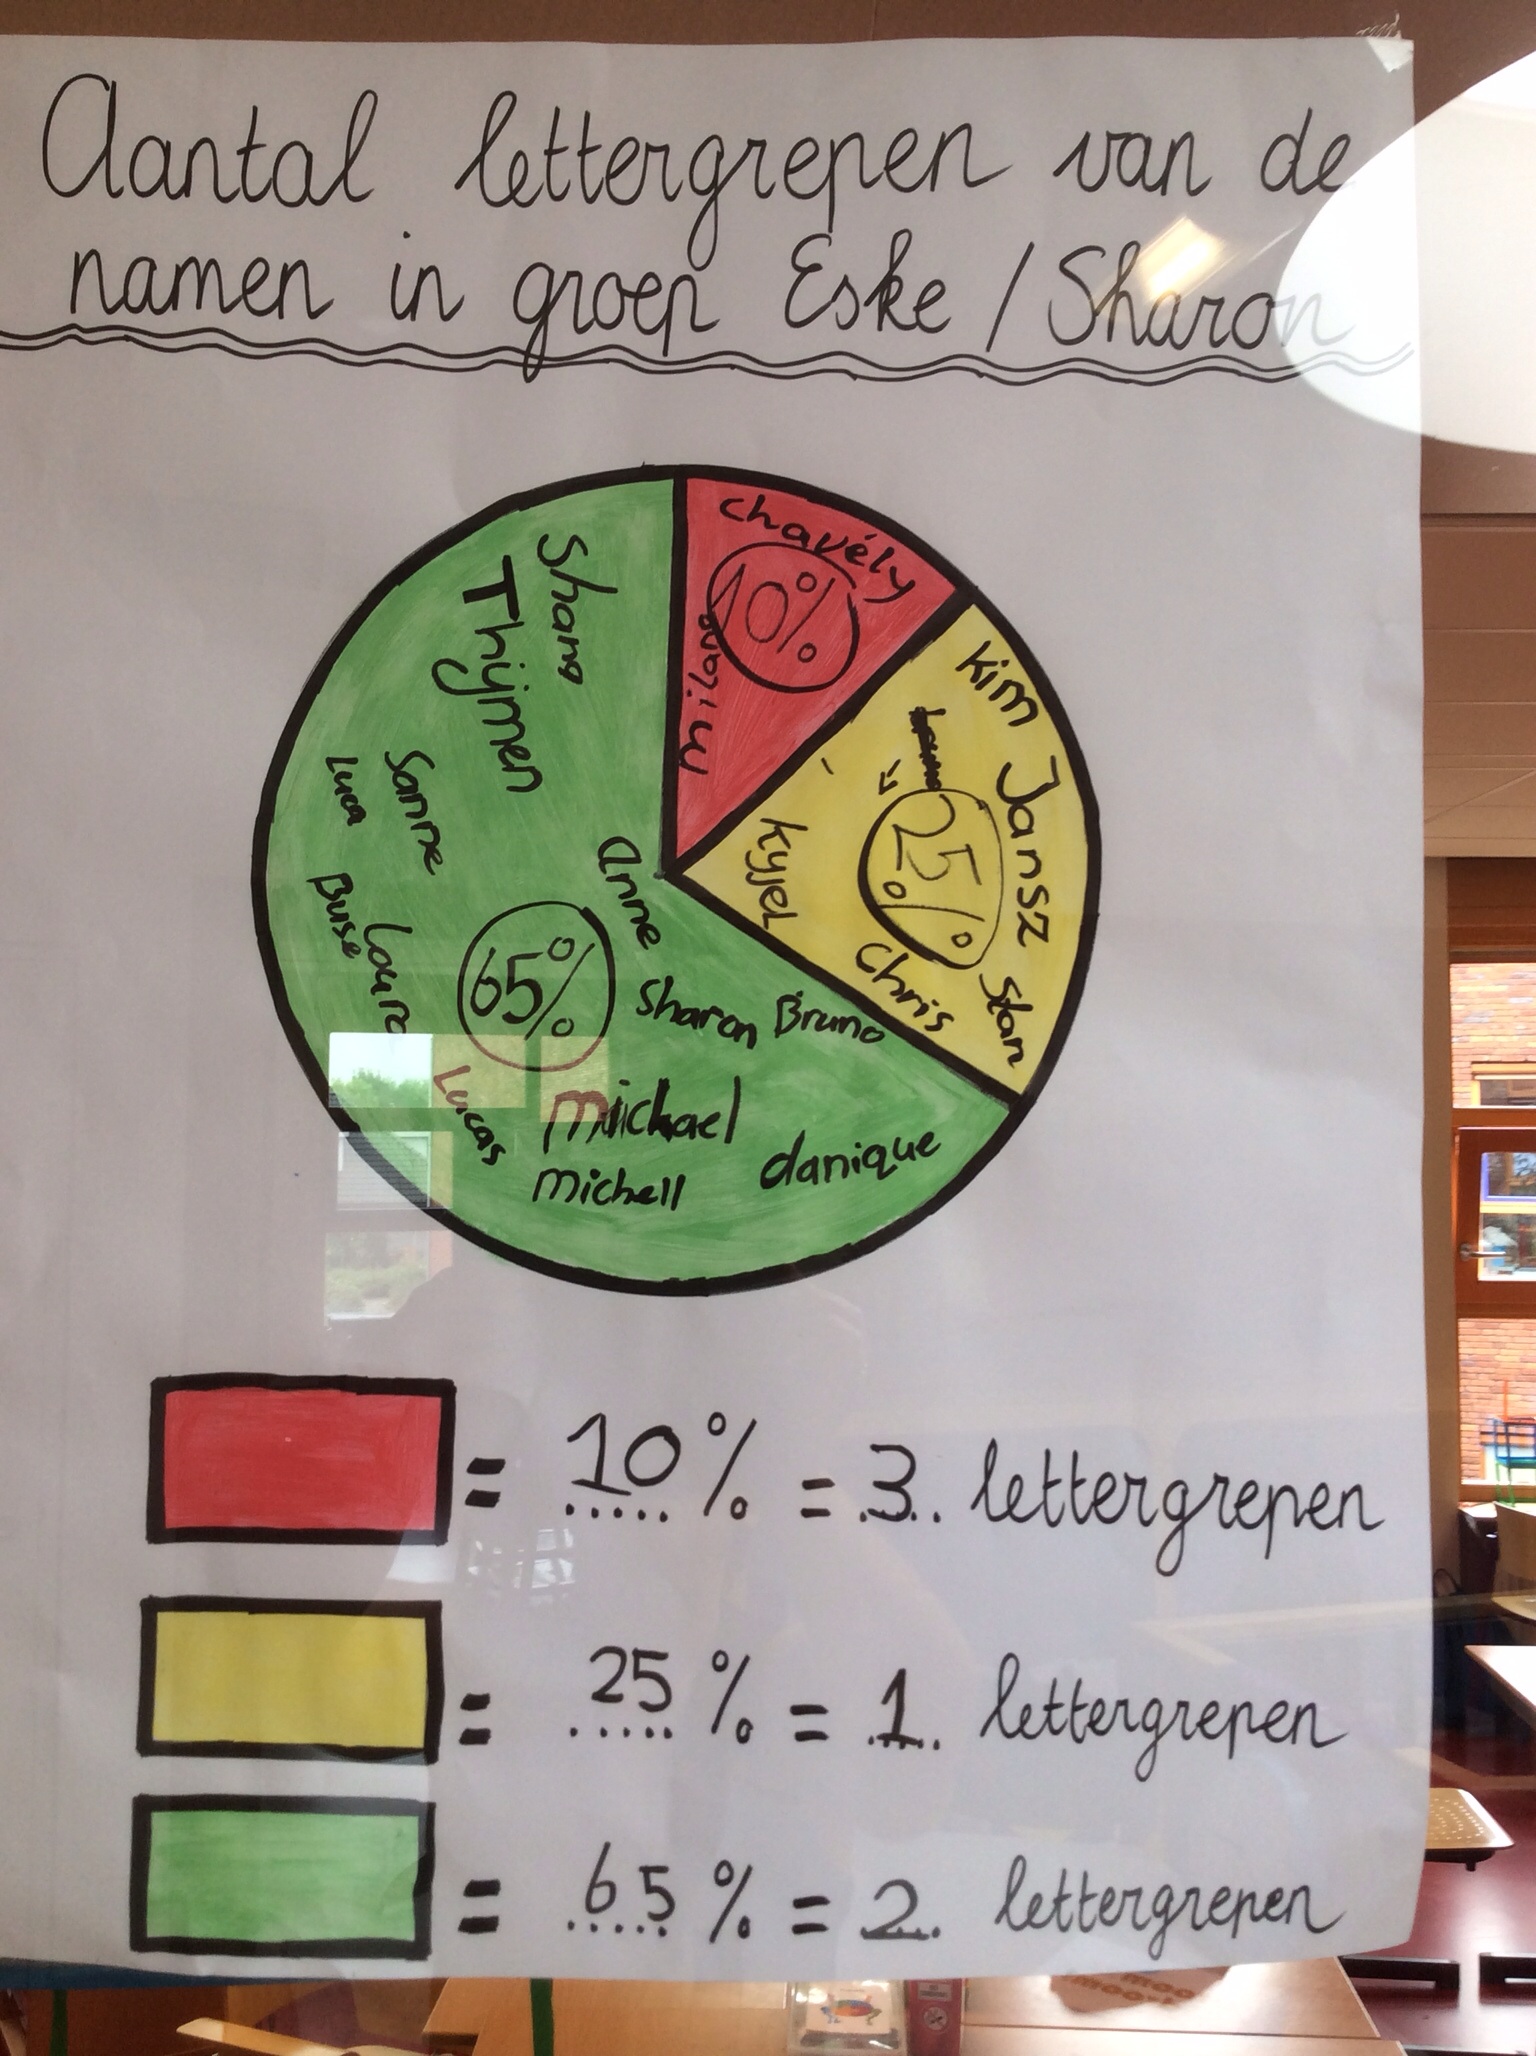 Aantal lettergrepen van de
namen in groep Eske / Sharon
chavély
10%
milano
Kim
Jansz
25%
Kyjel
Chris
Stan
Shams
Thijmen
Sanne
Luca
Anne
Buse
Laura
65%
Sharon
Bruno
Lucas
Michael
Michell
danique
= 10 % = 3 lettergrepen
= 25 % = 1 lettergrepen
= 65 % = 2 lettergrepen